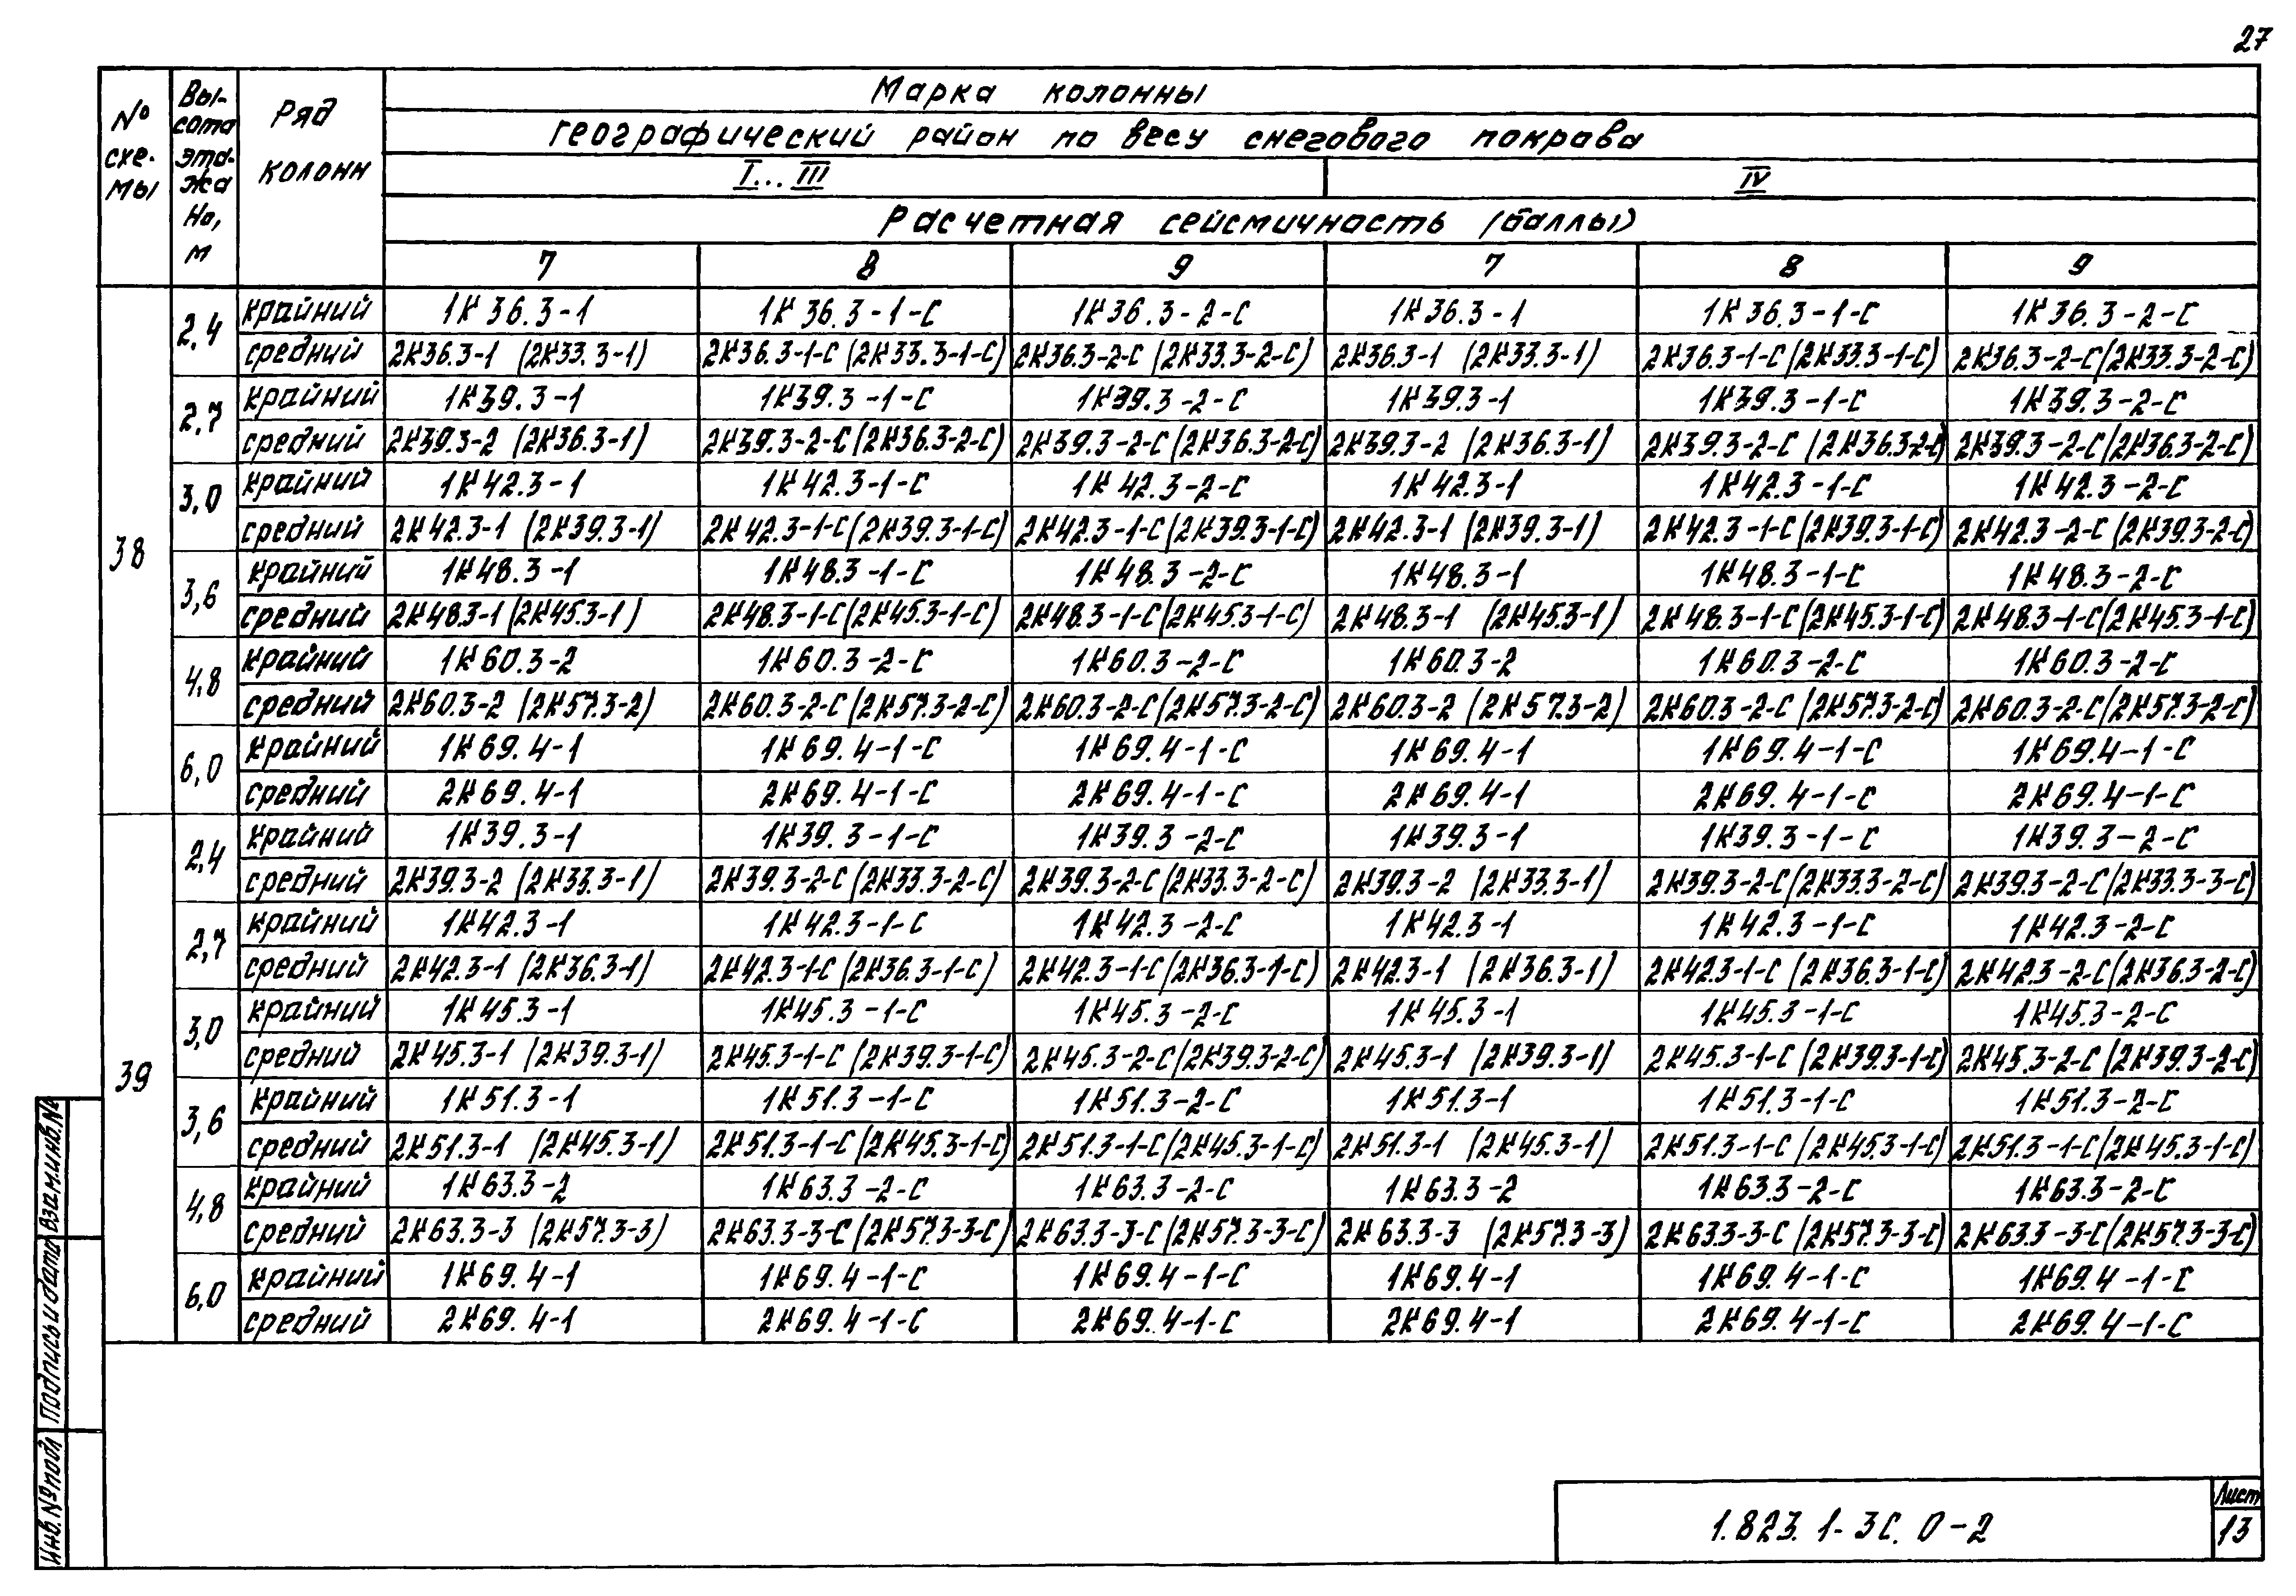 27
№ схе- мы
Вы- сота эта- жа Но, м
Ряд колонн
Марка колонны
Географический район по весу снегового покрова
I...III IV
Расчетная сейсмичность (баллы)
7 8 9 7 8 9
38
2,4 крайний 1К36.3-1 1К36.3-1-С 1К36.3-2-С 1К36.3-1 1К36.3-1-С 1К36.3-2-С
средний 2К36.3-1 (2К33.3-1) 2К36.3-1-С (2К33.3-1-С) 2К36.3-2-С (2К33.3-2-С) 2К36.3-1 (2К33.3-1) 2К36.3-1-С (2К33.3-1-С) 2К36.3-2-С (2К33.3-2-С)
2,7 крайний 1К39.3-1 1К39.3-1-С 1К39.3-2-С 1К39.3-1 1К39.3-1-С 1К39.3-2-С
средний 2К39.3-2 (2К36.3-1) 2К39.3-2-С (2К36.3-2-С) 2К39.3-2-С (2К36.3-2-С) 2К39.3-2 (2К36.3-1) 2К39.3-2-С (2К36.3-2-С) 2К39.3-2-С (2К36.3-2-С)
3,0 крайний 1К42.3-1 1К42.3-1-С 1К42.3-2-С 1К42.3-1 1К42.3-1-С 1К42.3-2-С
средний 2К42.3-1 (2К39.3-1) 2К42.3-1-С (2К39.3-1-С) 2К42.3-1-С (2К39.3-1-С) 2К42.3-1 (2К39.3-1) 2К42.3-1-С (2К39.3-1-С) 2К42.3-2-С (2К39.3-2-С)
3,6 крайний 1К48.3-1 1К48.3-1-С 1К48.3-2-С 1К48.3-1 1К48.3-1-С 1К48.3-2-С
средний 2К48.3-1 (2К45.3-1) 2К48.3-1-С (2К45.3-1-С) 2К48.3-1-С (2К45.3-1-С) 2К48.3-1 (2К45.3-1) 2К48.3-1-С (2К45.3-1-С) 2К48.3-1-С (2К45.3-1-С)
4,8 крайний 1К60.3-2 1К60.3-2-С 1К60.3-2-С 1К60.3-2 1К60.3-2-С 1К60.3-2-С
средний 2К60.3-2 (2К57.3-2) 2К60.3-2-С (2К57.3-2-С) 2К60.3-2-С (2К57.3-2-С) 2К60.3-2 (2К57.3-2) 2К60.3-2-С (2К57.3-2-С) 2К60.3-2-С (2К57.3-2-С)
6,0 крайний 1К69.4-1 1К69.4-1-С 1К69.4-1-С 1К69.4-1 1К69.4-1-С 1К69.4-1-С
средний 2К69.4-1 2К69.4-1-С 2К69.4-1-С 2К69.4-1 2К69.4-1-С 2К69.4-1-С
39
2,4 крайний 1К39.3-1 1К39.3-1-С 1К39.3-2-С 1К39.3-1 1К39.3-1-С 1К39.3-2-С
средний 2К39.3-2 (2К33.3-1) 2К39.3-2-С (2К33.3-2-С) 2К39.3-2-С (2К33.3-2-С) 2К39.3-2 (2К33.3-1) 2К39.3-2-С (2К33.3-2-С) 2К39.3-2-С (2К33.3-3-С)
2,7 крайний 1К42.3-1 1К42.3-1-С 1К42.3-2-С 1К42.3-1 1К42.3-1-С 1К42.3-2-С
средний 2К42.3-1 (2К36.3-1) 2К42.3-1-С (2К36.3-1-С) 2К42.3-1-С (2К36.3-1-С) 2К42.3-1 (2К36.3-1) 2К42.3-1-С (2К36.3-1-С) 2К42.3-2-С (2К36.3-2-С)
3,0 крайний 1К45.3-1 1К45.3-1-С 1К45.3-2-С 1К45.3-1 1К45.3-1-С 1К45.3-2-С
средний 2К45.3-1 (2К39.3-1) 2К45.3-1-С (2К39.3-1-С) 2К45.3-2-С (2К39.3-2-С) 2К45.3-1 (2К39.3-1) 2К45.3-1-С (2К39.3-1-С) 2К45.3-2-С (2К39.3-2-С)
3,6 крайний 1К51.3-1 1К51.3-1-С 1К51.3-2-С 1К51.3-1 1К51.3-1-С 1К51.3-2-С
средний 2К51.3-1 (2К45.3-1) 2К51.3-1-С (2К45.3-1-С) 2К51.3-1-С (2К45.3-1-С) 2К51.3-1 (2К45.3-1) 2К51.3-1-С (2К45.3-1-С) 2К51.3-1-С (2К45.3-1-С)
4,8 крайний 1К63.3-2 1К63.3-2-С 1К63.3-2-С 1К63.3-2 1К63.3-2-С 1К63.3-2-С
средний 2К63.3-3 (2К57.3-3) 2К63.3-3-С (2К57.3-3-С) 2К63.3-3-С (2К57.3-3-С) 2К63.3-3 (2К57.3-3) 2К63.3-3-С (2К57.3-3-С) 2К63.3-3-С (2К57.3-3-С)
6,0 крайний 1К69.4-1 1К69.4-1-С 1К69.4-1-С 1К69.4-1 1К69.4-1-С 1К69.4-1-С
средний 2К69.4-1 2К69.4-1-С 2К69.4-1-С 2К69.4-1 2К69.4-1-С 2К69.4-1-С
Инв. № подл Подпись и дата Взам.инв.№
1.823.1-3С. 0-2
Лист
13